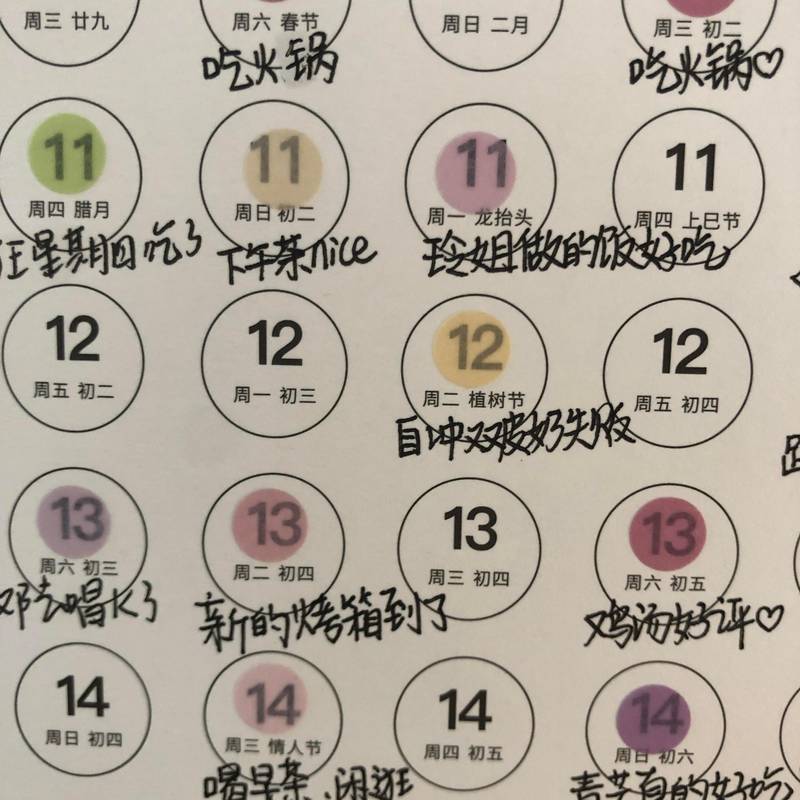 周三 廿九 周六 春节 周日 二月 周三 初二
吃火锅 吃火锅♡
11 11 11 11
周四 腊月 周日 初二 周一 龙抬头 周四 上巳节
星期四吃了 下午茶nice 玲姐做的饭好吃
12 12 12 12
周五 初二 周一 初三 周二 植树节 周五 初四
自冲双皮奶失败
13 13 13 13
周六 初三 周二 初四 周三 初四 周六 初五
邓去唱K了 新的烤箱到了 鸡汤好评♡
14 14 14 14
周日 初四 周三 情人节 周四 初五 周日 初六
喝早茶、闲逛 的好吃